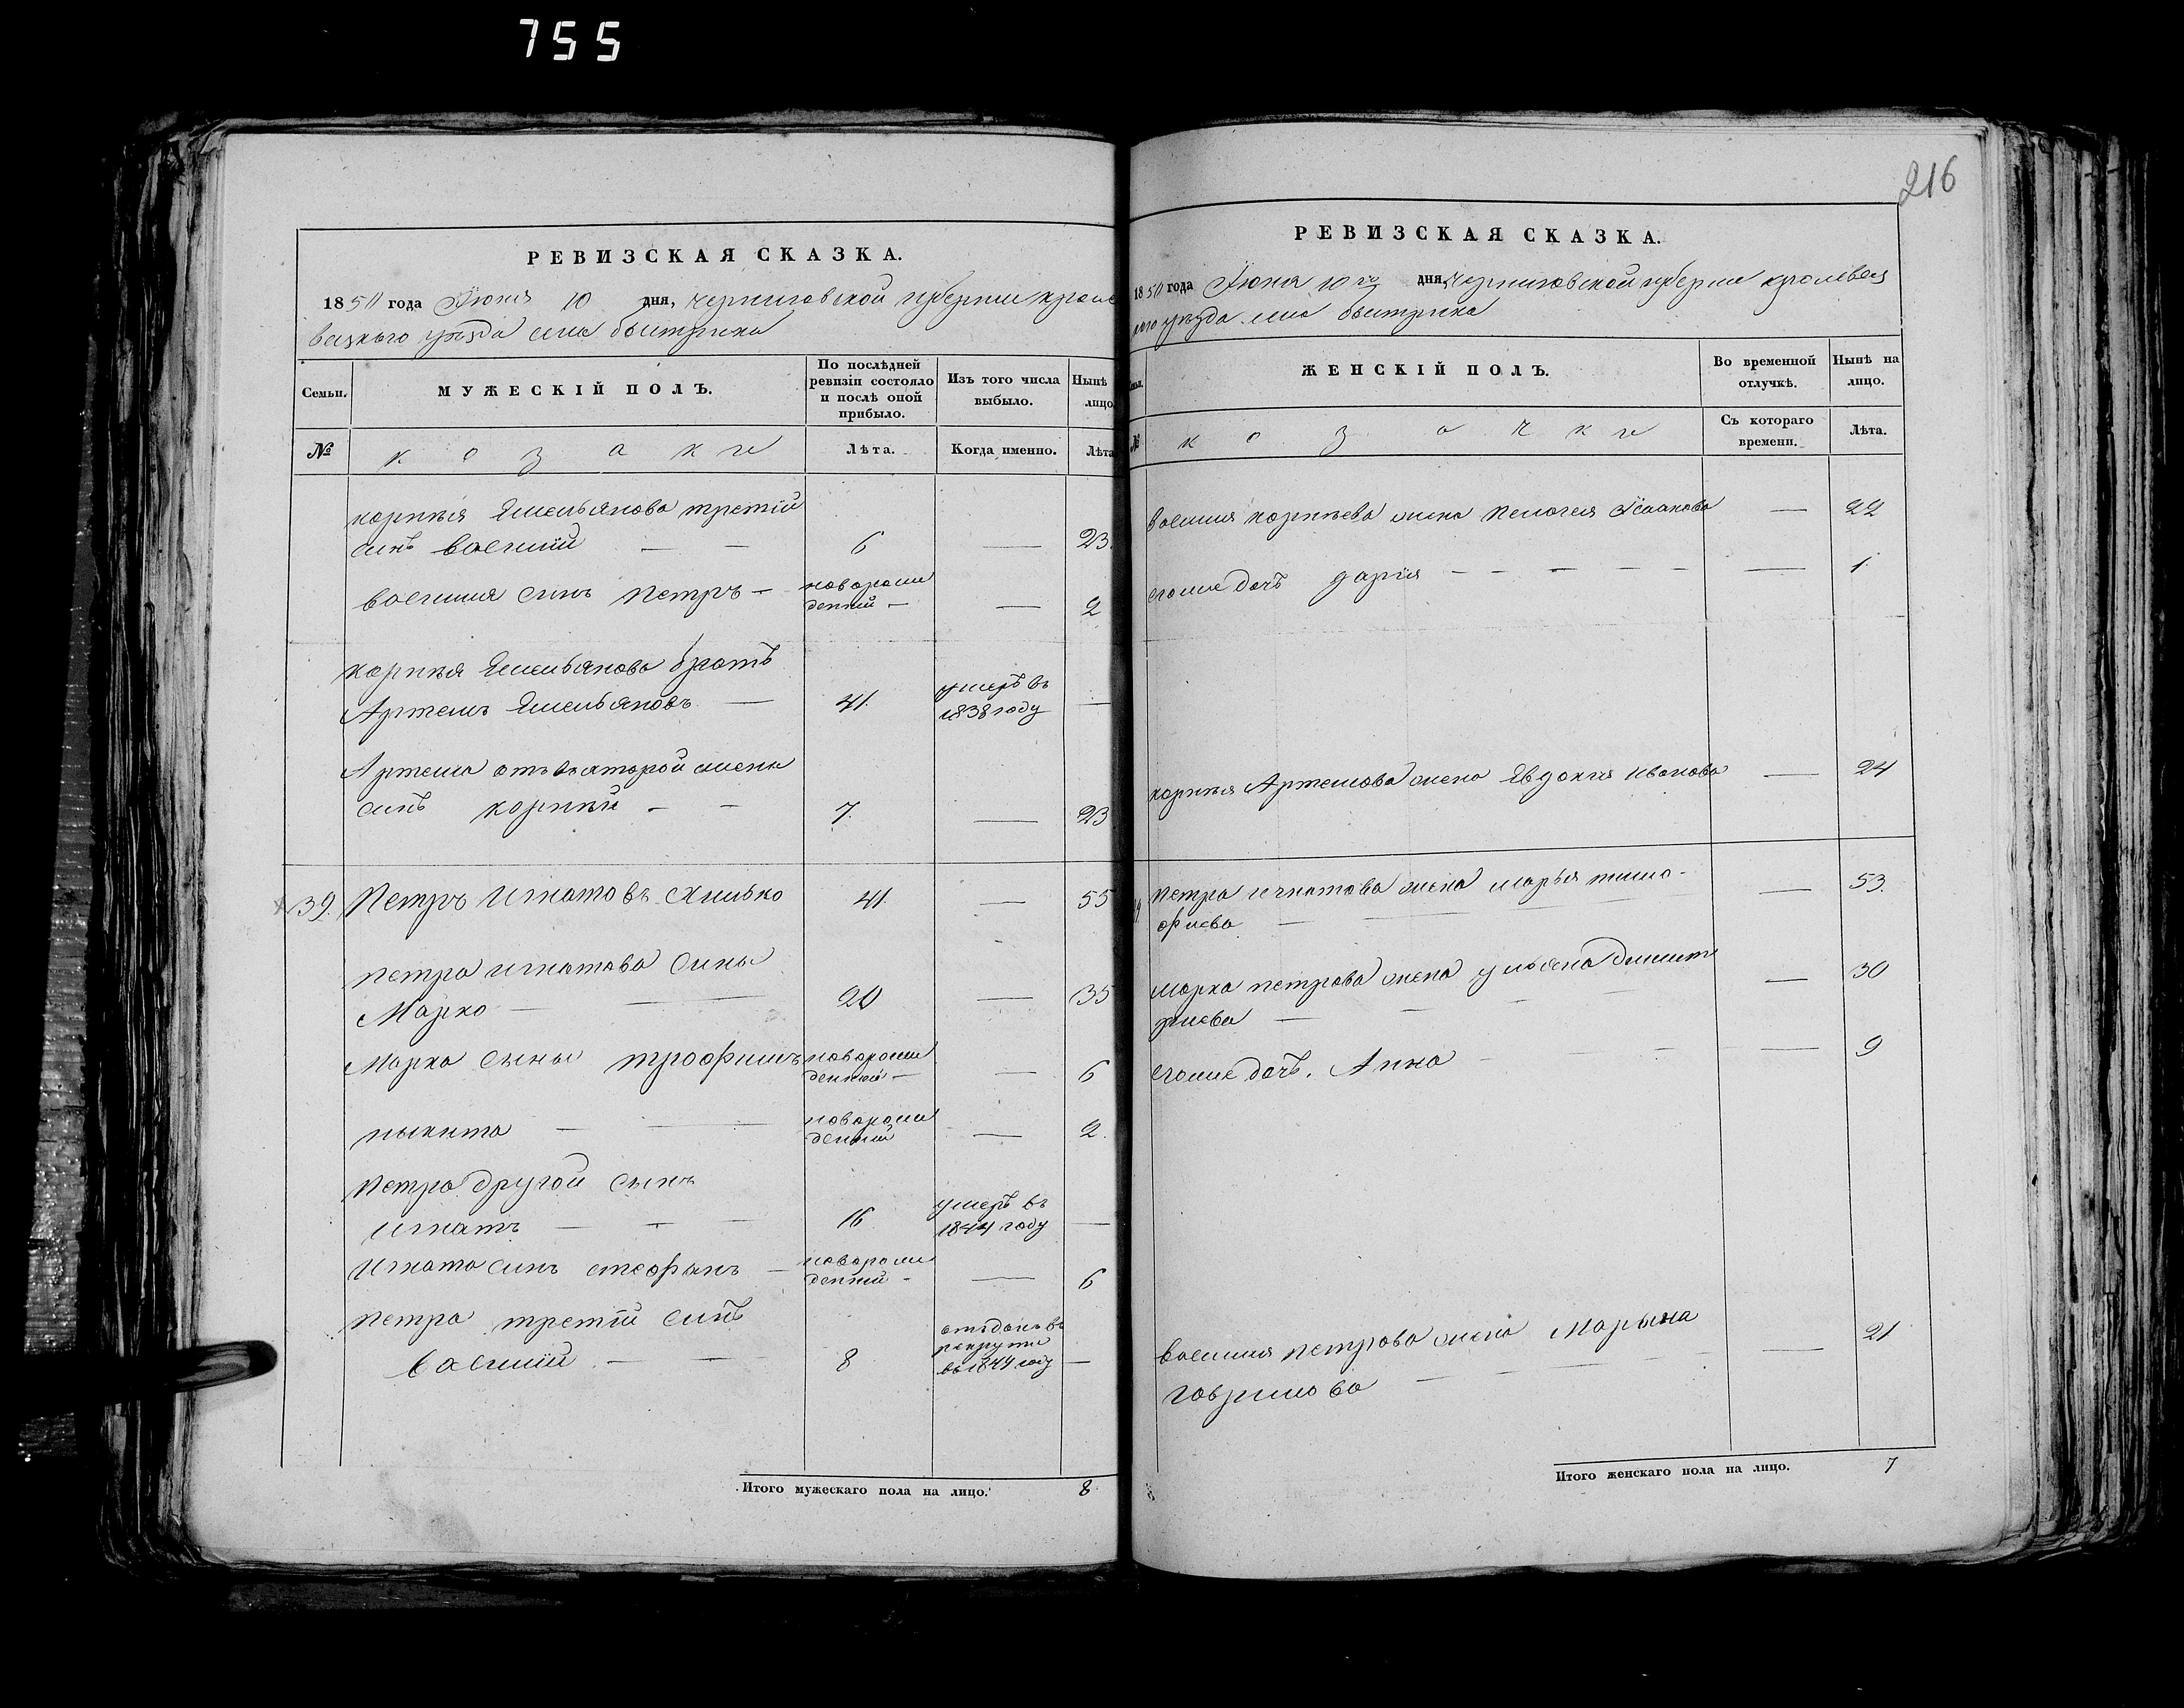 755
216
РЕВИЗСКАЯ СКАЗКА.
1850 года Іюня 10 дня, черниговской губернии кроле
вецкого уезда села быстрика
Семьи.
МУЖЕСКІЙ ПОЛЪ.
По послѣдней
ревизіи состояло
и послѣ оной
прибыло.
Изъ того числа
выбыло.
Нынѣ
лицо.
№
козаки
Лѣта.
Когда именно.
Лѣта
корнѣя Емельянова третій
синъ василій — — 6 — 23.
василия синъ Петръ — новорож
денний — — 2
корнѣя Емельянова братъ
Артемъ Емельяновъ — 41. умеръ въ
1838 году —
Артема отъ вторoй жены
синъ корнѣй — — 7. — 23
39. Петръ Игнатовъ 41. — 55
петра игнатова сины
Марко — — — 20 — 35
Марка сыны трофимъ новорож
денний — — 6
никита — — — новорож
денний — 2.
Петра другой сынъ
игнатъ — — — 16 умеръ въ
1844 году —
Игната синъ стефанъ — новорож
денний — — 6
петра третій синъ
василій — — 8 отъданъ въ
рекруты
въ 1849 году —
Итого мужескаго пола на лицо. 8
РЕВИЗСКАЯ СКАЗКА.
1850 года Іюня 10 го дня, черниговской губернии кролевец
кого уезда села быстрика
ЖЕНСКІЙ ПОЛЪ.
Во временной
отлучкѣ.
Нынѣ на
лицо.
№
козачки
Съ котораго
времени.
Лѣта.
василия корнѣева жена пелогея Исаакова — 22
егоже дочъ дария — — — — — — 1
корнѣя Артемова жена Явдокия иванова — 24
петра игнатова жена марья тимо- — 53.
фиева —
марка петрова жена ульяна димит — 30
риева —
егоже дочъ. Анна — — — 9
василия петрова жена Марына — 21
гаврилова —
Итого женскаго пола на лицо. 7